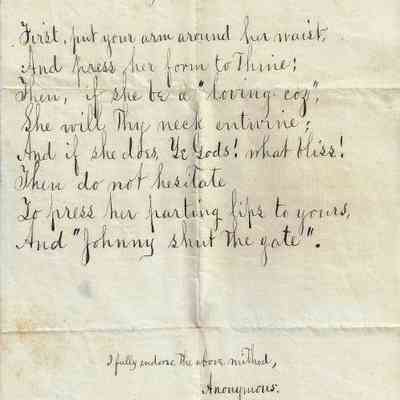 First, put your arm around her waist,
And press her form to Thine;
Then, if she be a "loving coz",
She will Thy neck entwine;
And if she does, Ye Gods! what bliss!
Then do not hesitate
To press her parting lips to yours,
And "Johnny shut The gate".
I fully endorse The above method,
Anonymous.